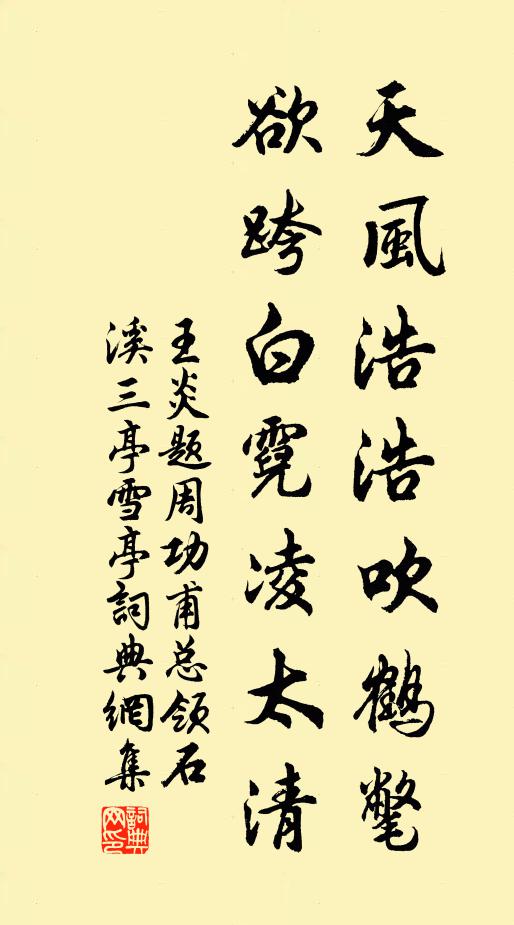 天風浩浩吹鶴氅
欲跨白霓凌太清
王炎題周功甫总領石
溪三亭雪亭詞典網集
詞典网印